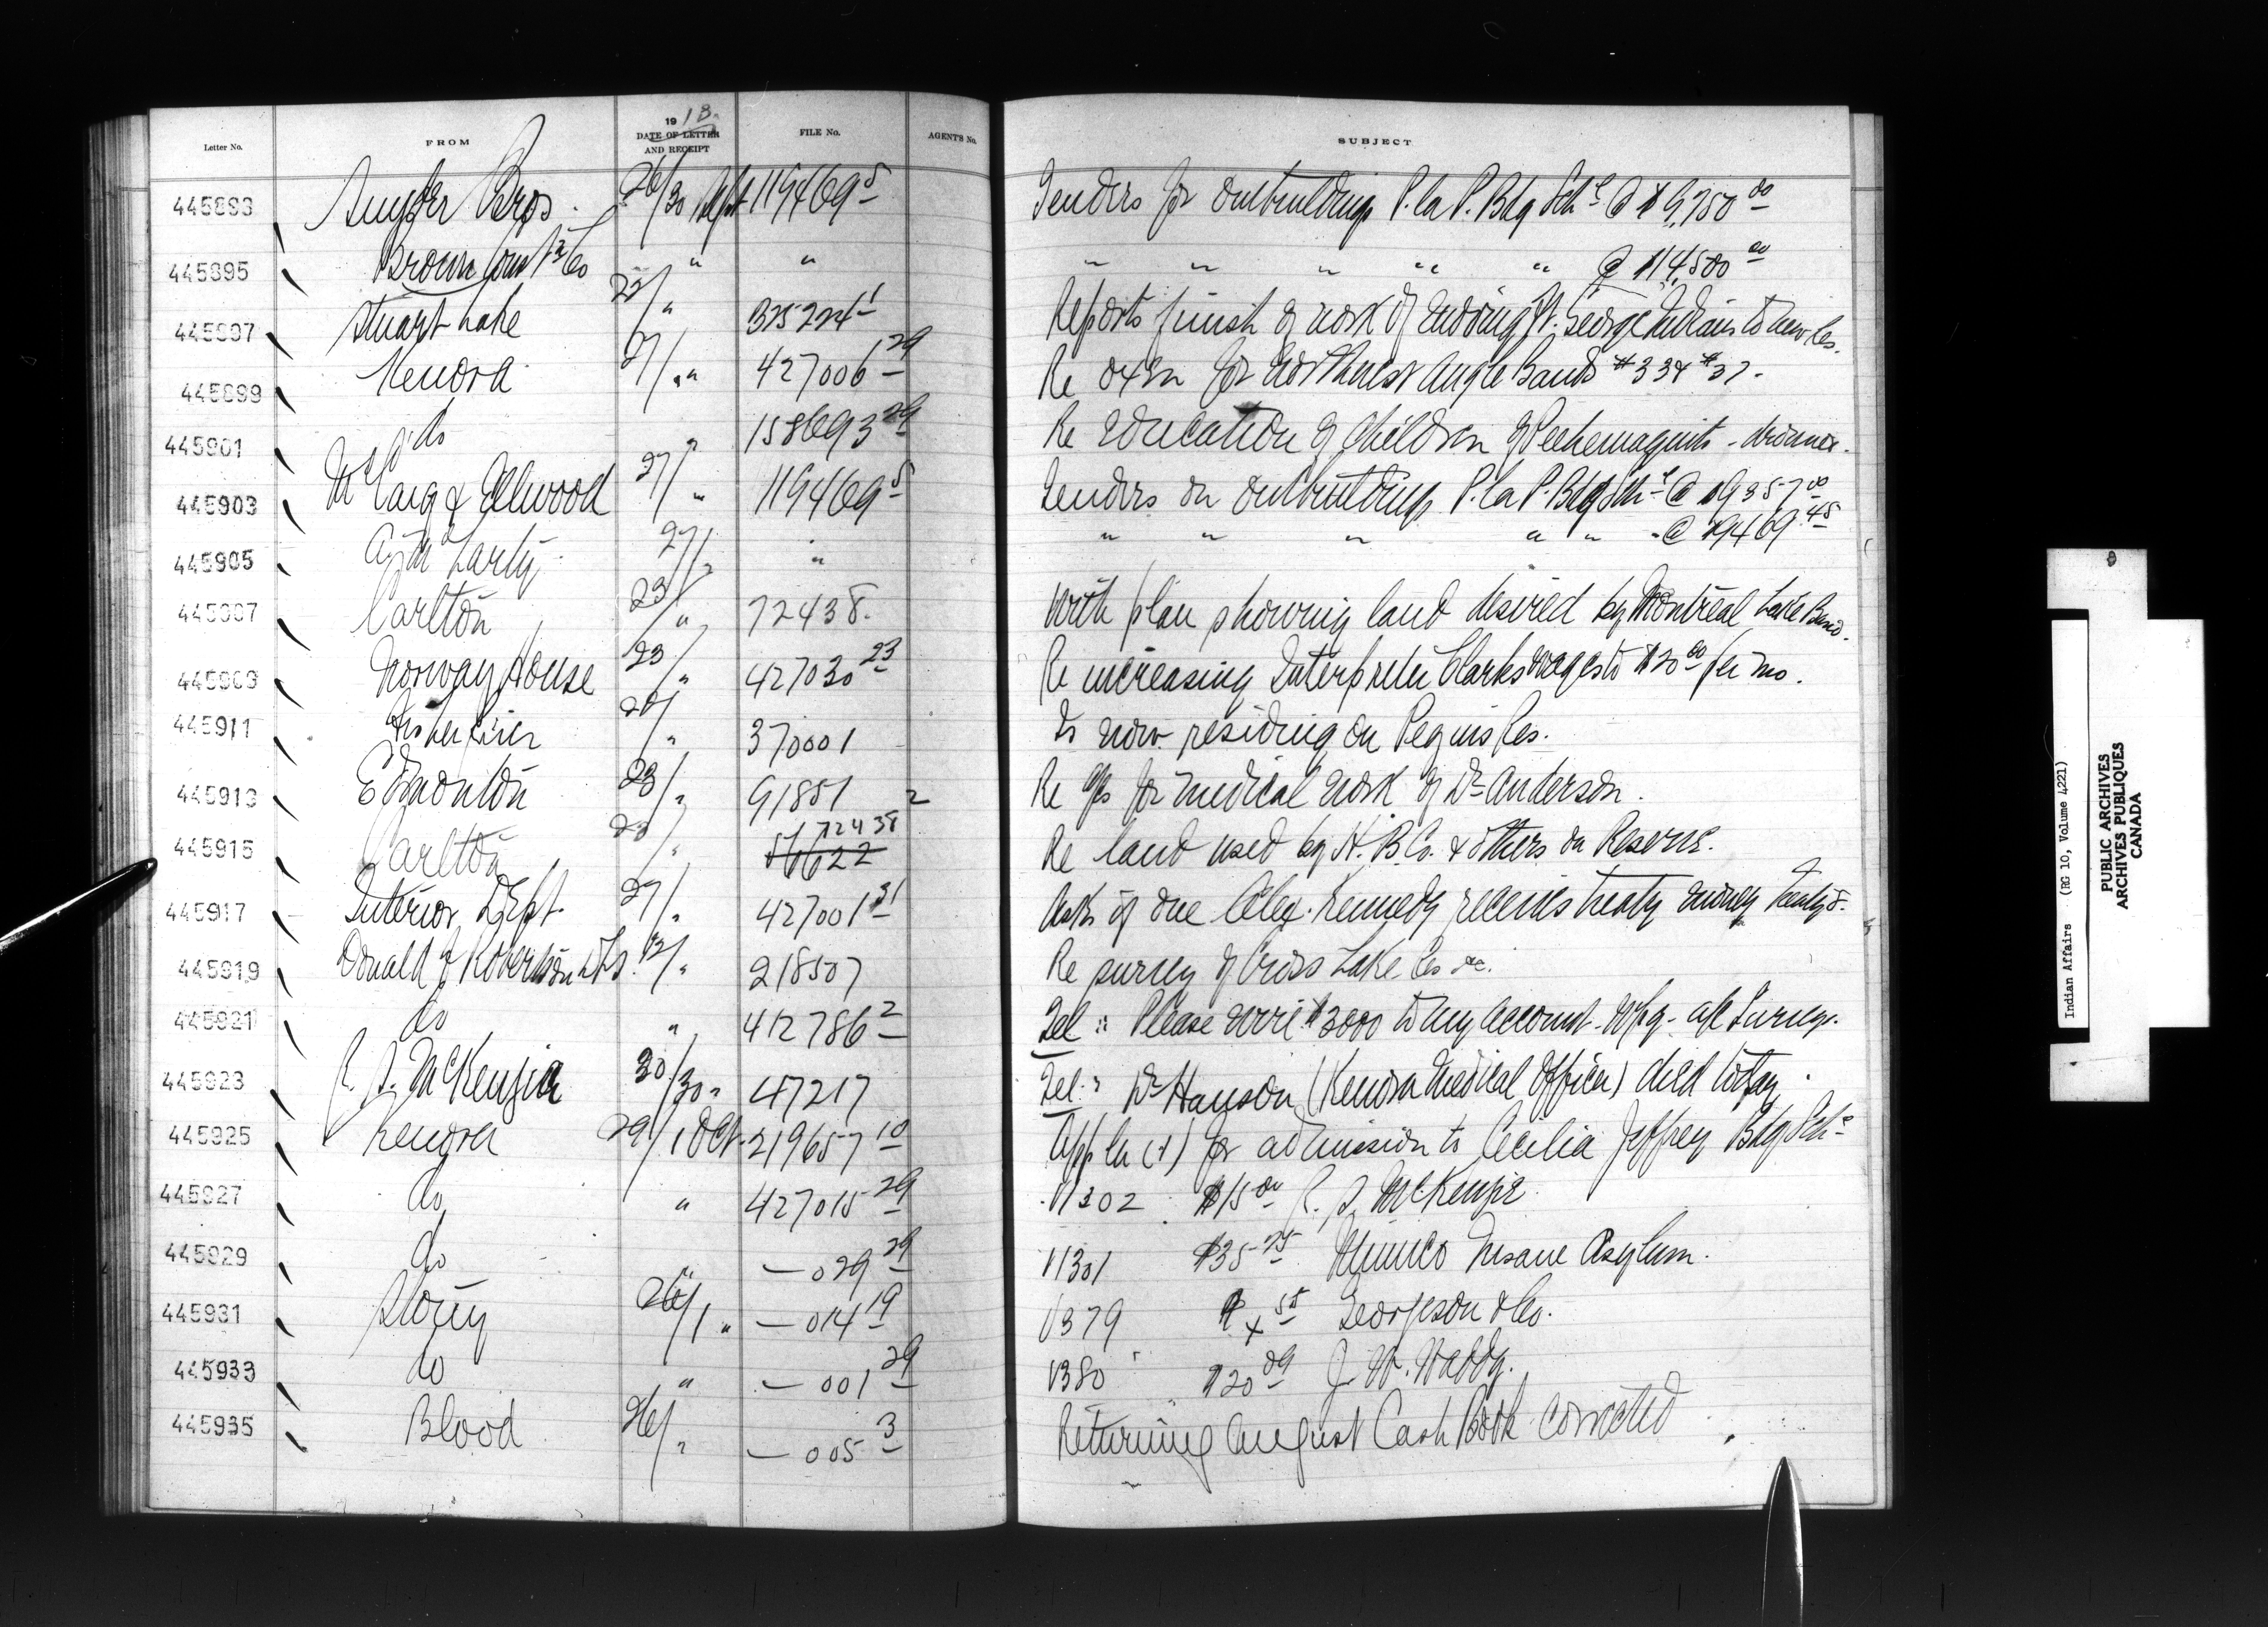 Letter No. FROM 1918 DATE OF LETTER AND RECEIPT FILE No. AGENT'S No. SUBJECT
445893 Snyder Bros. 26/30 Sept 119469 5 Tenders for outbuildings P. la P. Bdg Schl @ $9,750 00
445895 Brown Const n Co " " " " " " " @ $14,500 00
445897 Stuart Lake 22/ " 325224 1 Reports finish of work of moving Ft. George Indians to new Res.
445899 Kenora 27/ " 427006 29 Re oxen for Northwest Angle Bands #33 & #37.
445901 do " 158693 29 Re education of children of
445903 & Ellwood 27/ " 119469 5 Tenders on outbuildings P. la P. Bdg Schl @ $9357 00
445905 27/ " " " " " " " @ $9469 45
445907 Carlton 23/ " 72438. With plan showing land desired by Montreal Lake Band.
445909 Norway House 23/ " 427030 23 Re increasing Interpreter Clarks wages to $20 00 per mo.
445911 Fisher River 26/ " 370001 Is now residing on Peguis Res.
445913 Edmonton 23/ " 91851 2 Re a/cs for medical work of Dr Anderson.
445915 Carlton 23/ " 56622 72438 Re land used by H. B. Co. & others on Reserve.
445917 Interior Dept. 27/ " 427001 31 Asks if one Alex. Kennedy receives treaty money Treaty 5.
445919 Donald F Robertson DLS. 12/ " 218507 Re survey of Cross Lake Res &c.
445921 do " 412786 2 Tel: Please wire $3000 to my account Wpg. a/c Surveys.
445923 R. S. McKenzie 30/30 " 47217 Tel: Dr Hanson (Kenora Medical Officer) died today.
445925 Kenora 29/1 Oct. 219657 10 Appln (1) for admission to Cecilia Jeffrey Bdg Schl
445927 do " 427015 29 V1302 $15 00 R. S. McKenzie
445929 do " — 029 29 V1301 $35 75 Mimico Insane Asylum.
445931 Stony 26/1 " — 014 19 V379 55 Georgeson & Co.
445933 do " — 001 29 V380 $20 09 J. W. Waddy.
445935 Blood 26/ " — 005 3 Returning August Cash Book corrected.
Indian Affairs (RG 10, Volume 4221)
PUBLIC ARCHIVES
ARCHIVES PUBLIQUES
CANADA